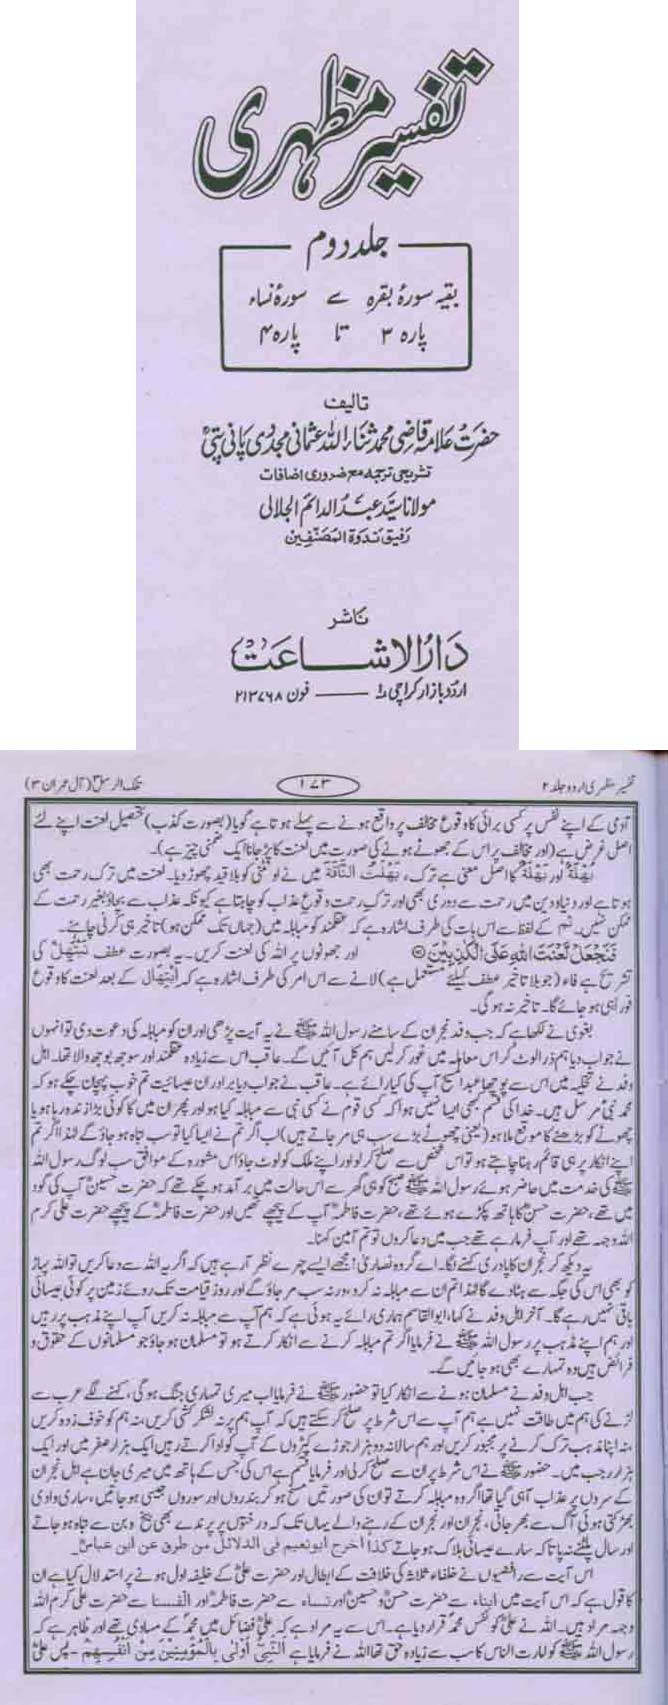 تفسیر مظہری
جلد دوم
بقیہ سورۂ بقرہ سے سورۂ نساء
پارہ ۳ تا پارہ ۴
تالیف
حضرت علامہ قاضی محمد ثناء اللہ عثمانی مجددی پانی پتیؒ
تشریحی ترجمہ مع ضروری اضافات
مولانا سید عبد الدائم الجلالی
رفیق ندوۃ المصنفین
ناشر
دار الاشاعت
اردو بازار کراچی ۱ فون ۲۱۳۷۶۸
تفسیر مظہری اردو جلد ۲ ۱۷۳ تلک الرسل (آل عمران ۳)
آدمی کے اپنے نفس پر کسی برائی کا وقوع مخالف پر واقع ہونے سے پہلے ہوتا ہے گویا (بصورت کذب) تحصیل لعنت اپنے لئے
اصل غرض ہے (اور مخالف پر اس کے جھوٹے ہونے کی صورت میں لعنت کا پڑ جانا ایک ضمنی چیز ہے)۔
بَهْلَةٌ اور بُهْلَةٌ کا اصل معنی ہے ترک، بَهَلْتُ النَّاقَةَ میں نے اونٹنی کو بلا قید چھوڑ دیا۔ لعنت میں ترک رحمت بھی
ہوتا ہے اور دنیا و دین میں رحمت سے دوری بھی اور ترک رحمت وقوع عذاب کو چاہتا ہے کیونکہ عذاب سے بچاؤ بغیر رحمت کے
ممکن نہیں۔ ثم کے لفظ سے اس بات کی طرف اشارہ ہے کہ عقلمند کو مباہلہ میں (جہاں تک ممکن ہو) تاخیر ہی کرنی چاہئے۔
فَنَجْعَلْ لَّعْنَتَ اللّٰهِ عَلَى الْكٰذِبِيْنَ اور جھوٹوں پر اللہ کی لعنت کریں۔ یہ بصورت عطف نَبْتَهِلْ کی
تشریح ہے فاء (جو بلا تاخیر عطف کیلئے مستعمل ہے) لانے سے اس امر کی طرف اشارہ ہے کہ ابتہال کے بعد لعنت کا وقوع
فوراً ہی ہو جائے گا۔ تاخیر نہ ہوگی۔
بغوی نے لکھا ہے کہ جب وفد نجران کے سامنے رسول اللہ ﷺ نے یہ آیت پڑھی اور ان کو مباہلہ کی دعوت دی تو انہوں
نے جواب دیا ہم ذرا لوٹ کر اس معاملہ میں غور کر لیں ہم کل آئیں گے۔ عاقب اس سے زیادہ عقلمند اور سوجھ بوجھ والا تھا۔ اہل
وفد نے تخلیہ میں اس سے پوچھا عبد المسیح آپ کی کیا رائے ہے۔ عاقب نے جواب دیا برادران عیسائیت تم خوب پہچان چکے ہو کہ
محمد نبی مرسل ہیں۔ خدا کی قسم کبھی ایسا نہیں ہوا کہ کسی قوم نے کسی نبی سے مباہلہ کیا ہو اور پھر ان میں کا کوئی بڑا زندہ رہا ہو یا
چھوٹے کو بڑھنے کا موقع ملا ہو (یعنی چھوٹے بڑے سب ہی مر جاتے ہیں) اب اگر تم نے ایسا کیا تو سب تباہ ہو جاؤ گے لہٰذا اگر تم
اپنے انکار پر ہی قائم رہنا چاہتے ہو تو اس شخص سے صلح کر لو اور اپنے ملک کو لوٹ جاؤ اس مشورہ کے موافق سب لوگ رسول اللہ
ﷺ کی خدمت میں حاضر ہوئے رسول اللہ ﷺ صبح کو ہی گھر سے اس حالت میں برآمد ہو چکے تھے کہ حضرت حسینؓ آپ کی گود
میں تھے، حضرت حسنؓ کا ہاتھ پکڑے ہوئے تھے، حضرت فاطمہؓ آپ کے پیچھے تھیں اور حضرت فاطمہؓ کے پیچھے حضرت علی کرم
اللہ وجہہ تھے اور آپ فرما رہے تھے جب میں دعا کروں تو تم آمین کہنا۔
یہ دیکھ کر نجران کا پادری کہنے لگا۔ اے گروہ نصاریٰ! مجھے ایسے چہرے نظر آ رہے ہیں کہ اگر یہ اللہ سے دعا کریں تو اللہ پہاڑ
کو بھی اس کی جگہ سے ہٹا دے گا لہٰذا تم ان سے مباہلہ نہ کرو، ورنہ سب مر جاؤ گے اور روز قیامت تک روئے زمین پر کوئی عیسائی
باقی نہیں رہے گا۔ آخر اہل وفد نے کہا، ابوالقاسم ہماری رائے یہ ہوئی ہے کہ ہم آپ سے مباہلہ نہ کریں آپ اپنے مذہب پر رہیں
اور ہم اپنے مذہب پر رسول اللہ ﷺ نے فرمایا اگر تم مباہلہ کرنے سے انکار کرتے ہو تو مسلمان ہو جاؤ جو مسلمانوں کے حقوق و
فرائض ہیں وہ تمہارے بھی ہو جائیں گے۔
جب اہل وفد نے مسلمان ہونے سے انکار کیا تو حضور ﷺ نے فرمایا اب میری تمہاری جنگ ہوگی، کہنے لگے عرب سے
لڑنے کی ہم میں طاقت نہیں ہے ہم آپ سے اس شرط پر صلح کر سکتے ہیں کہ آپ ہم پر نہ لشکر کشی کریں، نہ ہم کو خوف زدہ کریں
نہ اپنا مذہب ترک کرنے پر مجبور کریں اور ہم سالانہ دو ہزار جوڑے کپڑوں کے آپ کو ادا کرتے رہیں ایک ہزار صفر میں اور ایک
ہزار رجب میں۔ حضور ﷺ نے اس شرط پر ان سے صلح کر لی اور فرمایا قسم ہے اس کی جس کے ہاتھ میں میری جان ہے اہل نجران
کے سروں پر عذاب آ ہی گیا تھا اگر وہ مباہلہ کرتے تو ان کی صورتیں مسخ ہو کر بندروں اور سوروں جیسی ہو جاتیں، ساری وادی
بھڑکتی ہوئی آگ سے بھر جاتی، نجران اور نجران کے رہنے والے یہاں تک کہ درختوں پر پرندے بھی بیخ و بن سے تباہ ہو جاتے
اور سال پلٹنے نہ پاتا کہ سارے عیسائی ہلاک ہو جاتے كذا اخرج ابونعيم فى الدلائل من طرق عن ابن عباسؓ۔
اس آیت سے رافضیوں نے خلفاء ثلاثہ کی خلافت کے ابطال اور حضرت علیؓ کے خلیفہ اول ہونے پر استدلال کیا ہے ان
کا قول ہے کہ اس آیت میں ابناء سے حضرت حسنؓ و حسینؓ اور نساء سے حضرت فاطمہؓ اور انفسنا سے حضرت علی کرم اللہ
وجہہ مراد ہیں۔ اللہ نے علیؓ کو نفس محمدؐ قرار دیا ہے۔ اس سے یہ مراد ہے کہ علیؓ فضائل میں محمدؐ کے مساوی تھے اور ظاہر ہے کہ
رسول اللہ ﷺ کو امارت الناس کا سب سے زیادہ حق تھا اللہ نے فرمایا ہے اَلنَّبِىُّ اَوْلٰى بِالْمُؤْمِنِيْنَ مِنْ اَنْفُسِهِمْ۔ پس علیؓ